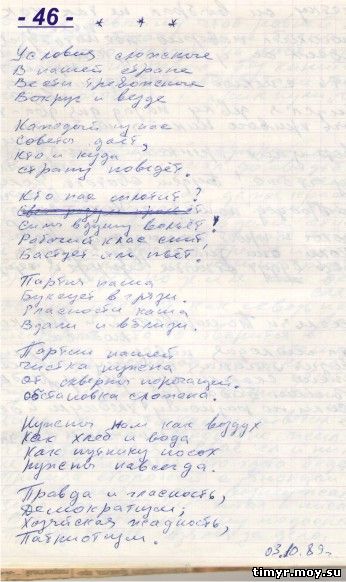 - 46 -
* * *
Условия сложные
В нашей стране
Вести тревожные
Вокруг и везде
Каждый из нас
Советы даёт,
Кто и куда
страну поведёт.
Кто нас сплотит?
Силы в душу вольёт?
Рабочий клас спит,
Бастует иль пьёт.
Партия наша
Буксует в грязи.
Гласности каша
Вдали и вблизи.
Партии нашей
чистка нужна
От скверны
обстановка сложна.
Нужны нам как воздух
Как хлеб и вода
Как путнику посох
Нужны навсегда.
Правда и гласность,
Демократизм,
Хозяйская жадность,
Патриотизм.
03.10.89г.
timyr.moy.su